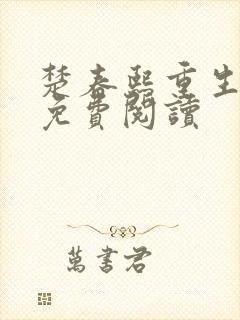 楚春熙重生
免費閱讀
萬書君